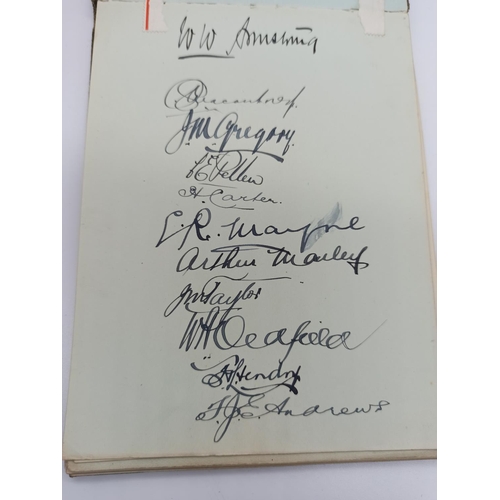 W W Armstrong
J.M. Gregory.
C E Pellew
H. Carter.
E. R. Mayne
Arthur Mailey
J M Taylor
W A Oldfield
Hendry
T. J. E. Andrews